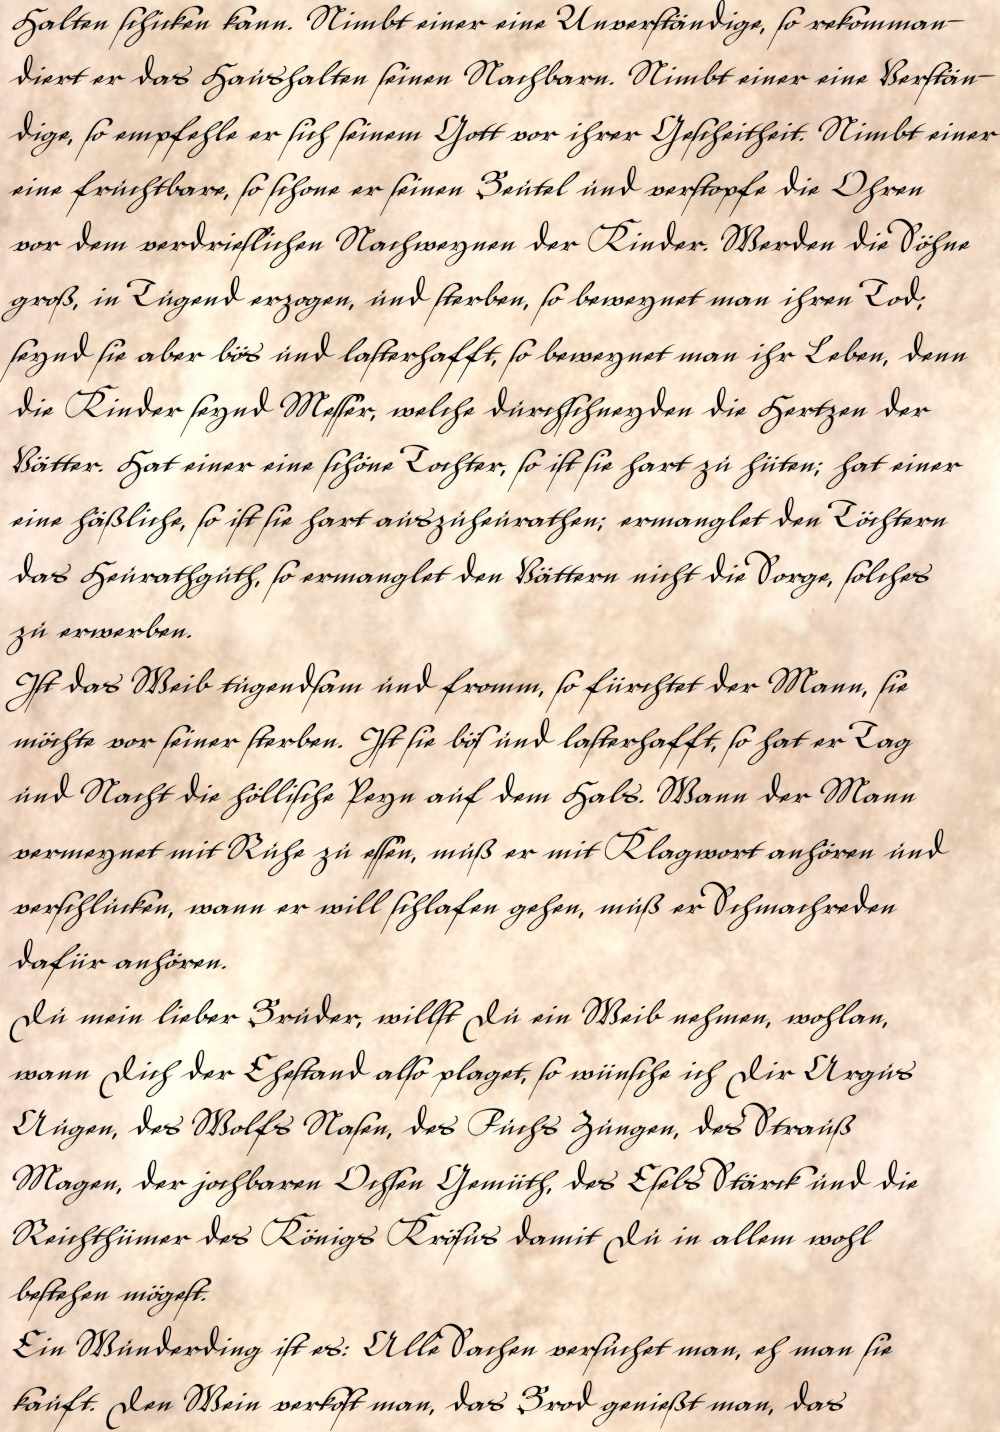 Halten schicken kann. Nimbt einer eine Unverständige, so rekomman-
diert er das Haushalten seinen Nachbarn. Nimbt einer eine Verstän-
dige, so empfehle er sich seinem Gott vor ihrer Gescheitheit. Nimbt einer
eine fruchtbare, so schone er seinen Beutel und verstopfe die Ohren
vor dem verdrieslichen Nachweynen der Kinder. Werden die Söhne
groß, in Tugend erzogen, und sterben, so beweynet man ihren Tod;
seynd sie aber bös und lasterhafft, so beweynet man ihr Leben, denn
die Kinder seynd Messer, welche durchschneyden die Hertzen der
Vätter. Hat einer eine schöne Tochter, so ist sie hart zu hüten; hat einer
eine häßliche, so ist sie hart auszuheurathen; ermanglet den Töchtern
das Heurathguth, so ermanglet den Vättern nicht die Sorge, solches
zu erwerben.
Ist das Weib tugendsam und fromm, so fürchtet der Mann, sie
möchte vor seiner sterben. Ist sie bös und lasterhafft, so hat er Tag
und Nacht die höllische Peyn auf dem Hals. Wann der Mann
vermeynet mit Ruhe zu essen, muß er mit Klagwort anhören und
verschlucken, wann er will schlafen gehen, muß er Schmachreden
dafür anhören.
Du mein lieber Bruder, willst Du ein Weib nehmen, wohlan,
wann Dich der Ehestand also plaget, so wünsche ich Dir Argus
Augen, des Wolfs Nasen, des Fuchs Zungen, des Strauß
Magen, der jochbaren Ochsen Gemüth, des Esels Stärck und die
Reichthümer des Königs Krösus damit Du in allem wohl
bestehen mögest.
Ein Wunderding ist es: Alle Sachen versuchet man, eh man sie
kauft. Den Wein verkost man, das Brod genießt man, das